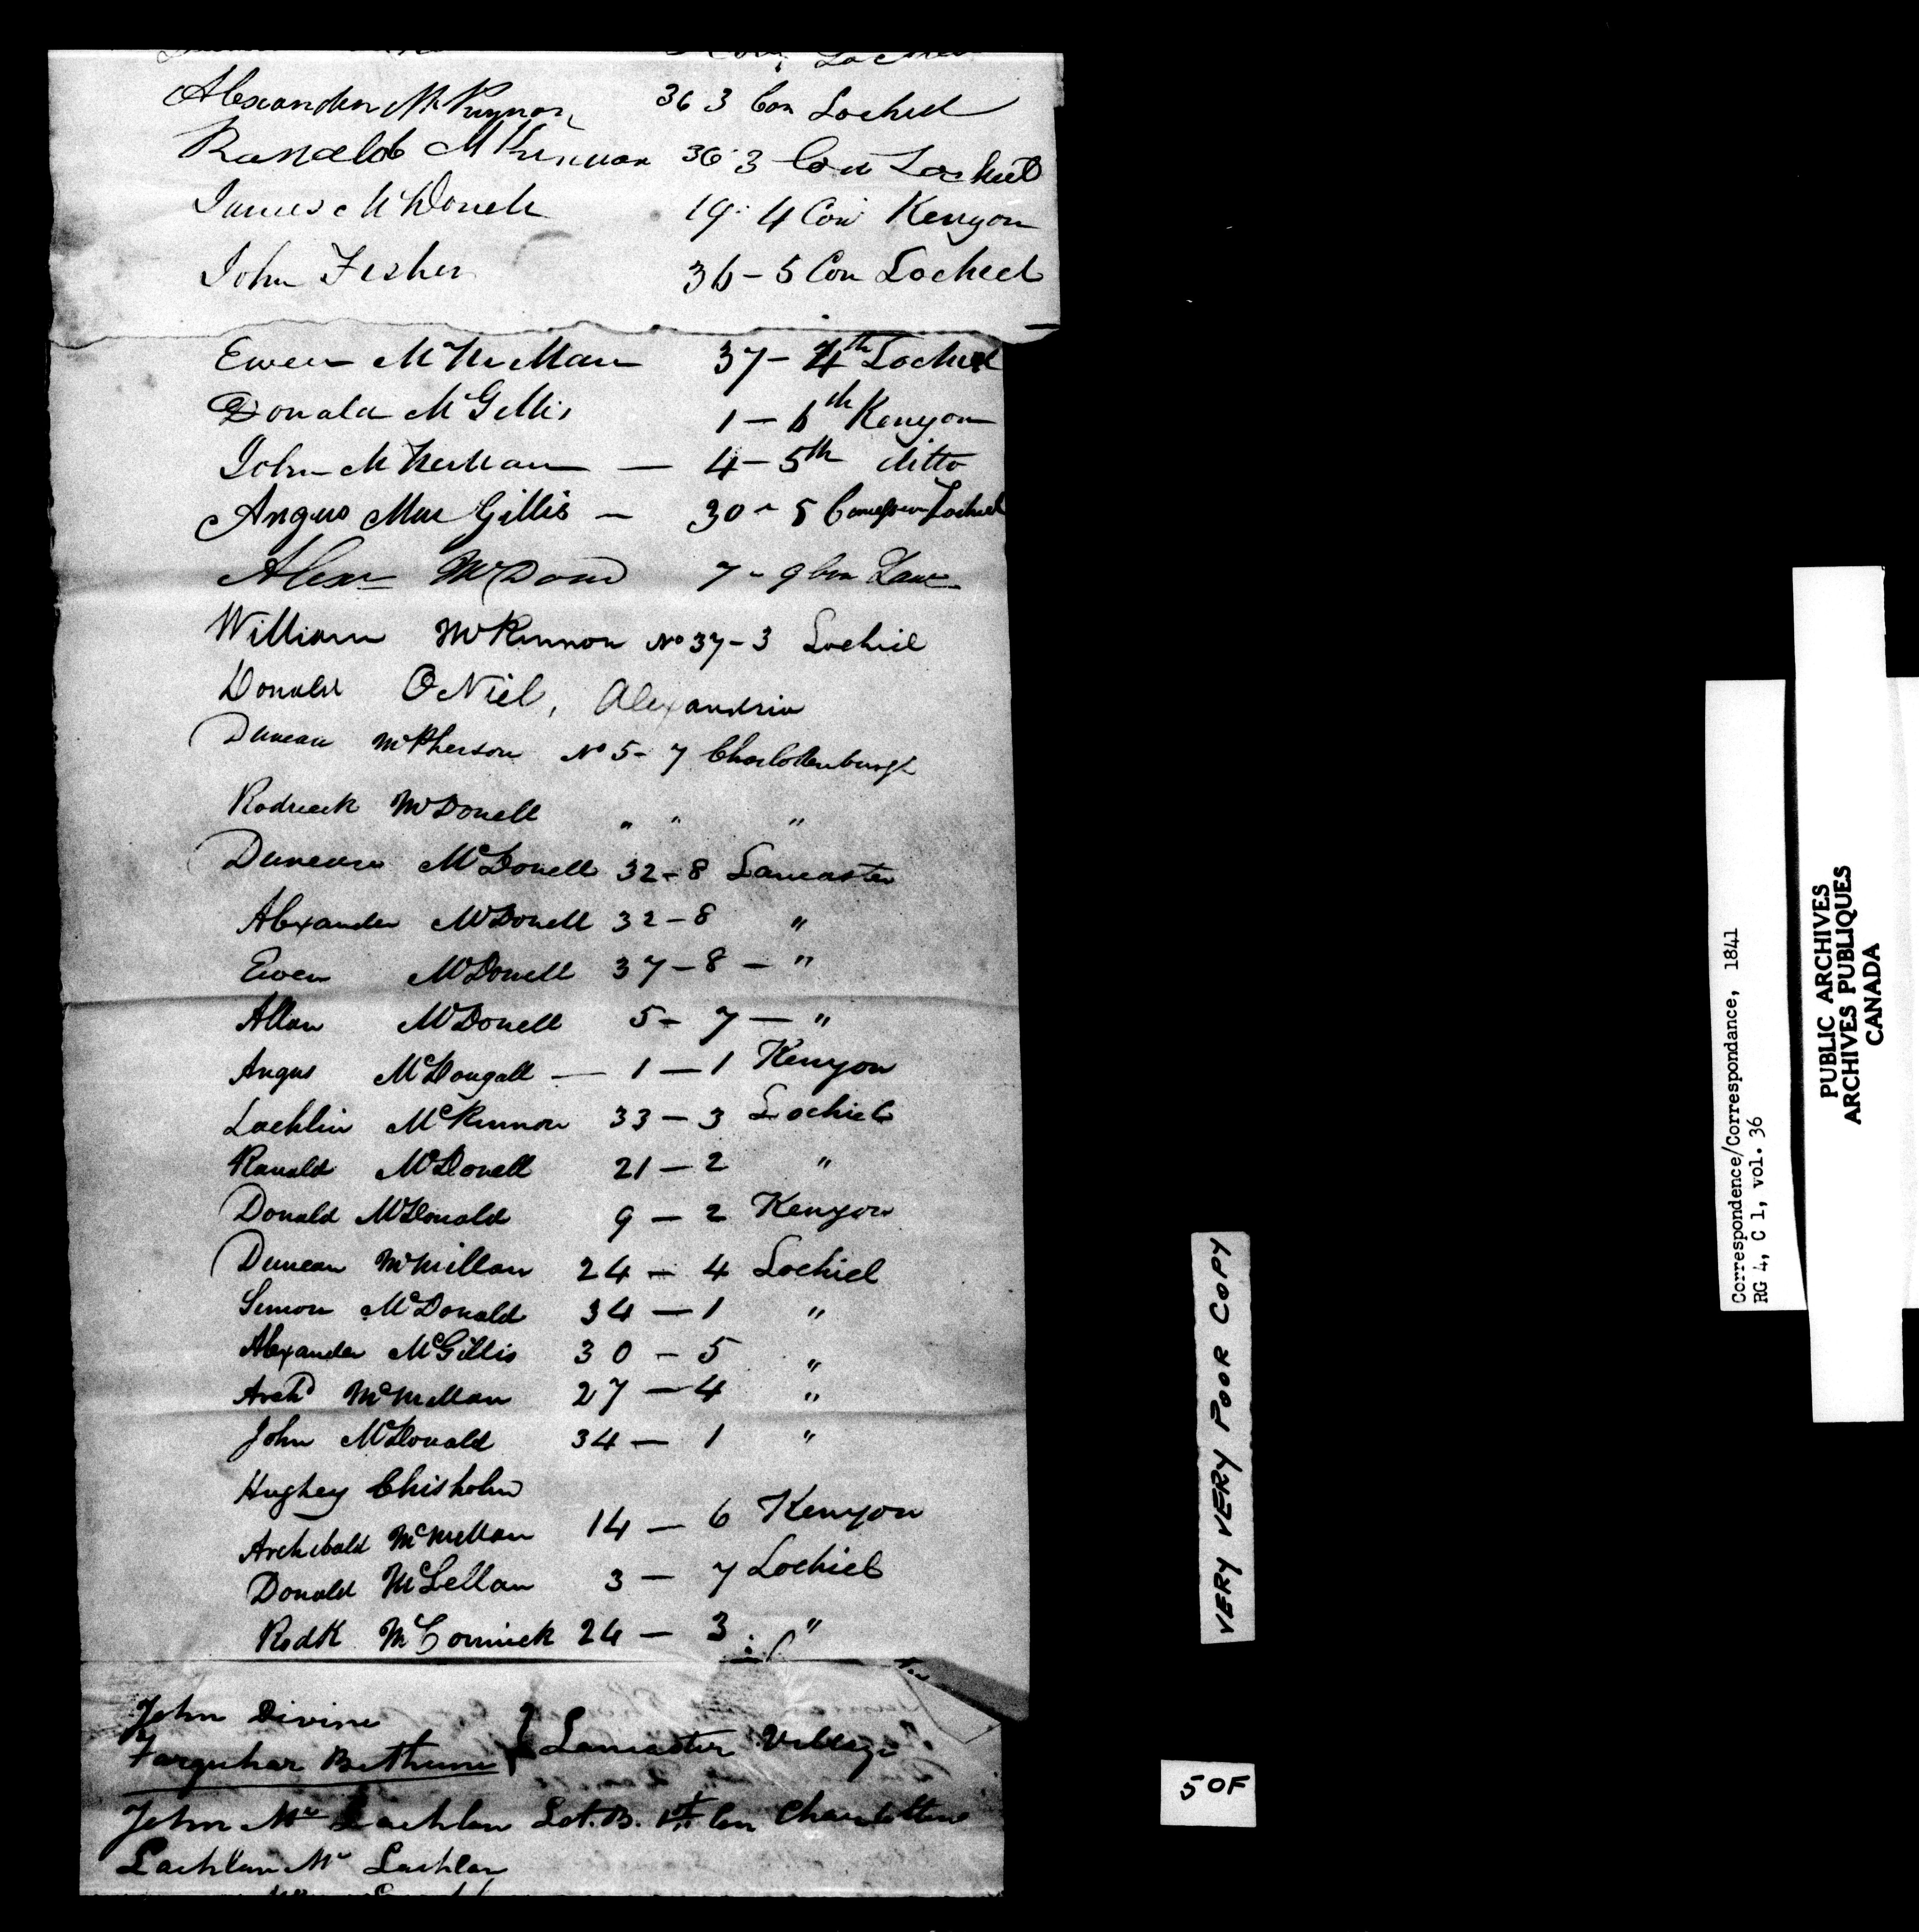 Alexander McKinnon 36 3 Con Lochiel
Ranald McKinnon 36 3 Con Lochiel
James McDonell 19 4 Con Kenyon
John Fisher 36 - 5 Con Lochiel
Ewen McMillan 37 - 4th Lochiel
Donald McGillis 1 - 6th Kenyon
John McMillan — 4 - 5th ditto
Angus Mac Gillis — 30 - 5 Concession Lochiel
Alexr 7 - 9 Con Lan
William McKinnon No 37 - 3 Lochiel
Donald O Niel, Alexandria
Duncan McPherson No 5 - 7 Charlottenburgh
Rodrick McDonell " " "
Duncan McDonell 32 - 8 Lancaster
Alexander McDonell 32 - 8 "
Ewen McDonell 37 - 8 - "
Allan McDonell 5 - 7 — "
Angus McDougall — 1 — 1 Kenyon
Lachlin McKinnon 33 — 3 Lochiel
Ranald McDonell 21 — 2 "
Donald McDonald 9 — 2 Kenyon
Duncan McMillan 24 — 4 Lochiel
Simon McDonald 34 — 1 "
Alexander McGillis 30 - 5 "
Archd McMillan 27 — 4 "
John McDonald 34 — 1 "
Hughey Chisholm
Archibald McMillan 14 — 6 Kenyon
Donald McLellan 3 — 7 Lochiel
Rodk McCormick 24 — 3 "
John Divine
Farquhar Bethune } Lancaster Village
John Mc Lachlan Lot. B. 1st Con Charlotten
Lachlan Mc Lachlan
VERY VERY POOR COPY
5 OF
Correspondence/Correspondance, 1841
RG 4, C 1, vol. 36
PUBLIC ARCHIVES
ARCHIVES PUBLIQUES
CANADA